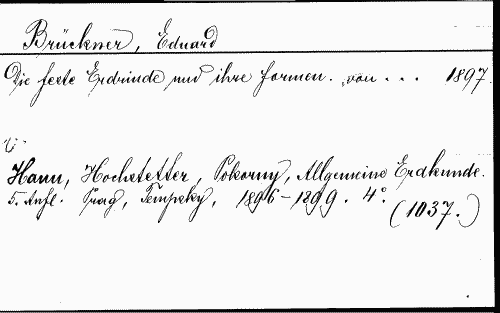 Brückner, Eduard
Die feste Erdrinde und ihre Formen. von ... 1897.
Hann, Hochstetter, Pokorny, Allgemeine Erdkunde.
5. Aufl. Prag, Tempsky, 1896-1899. 4°.
(1037.)